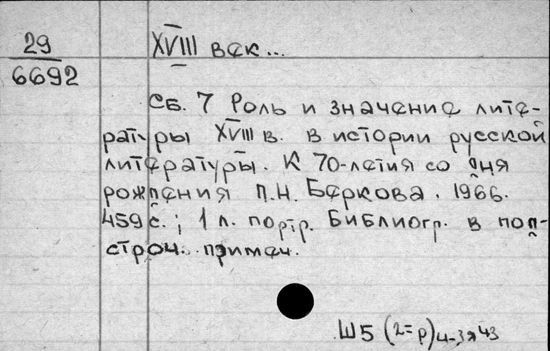 29
6692
XVIII век...
Сб. 7 Роль и значение лите-
ратуры XVIII в. в истории русской
литературы. К 70-летия со дня
рождения П.Н. Беркова. 1966.
459 с.; 1 л. портр. Библиогр. в под-
строч. примеч.
Ш5 (2=р)4-3я43